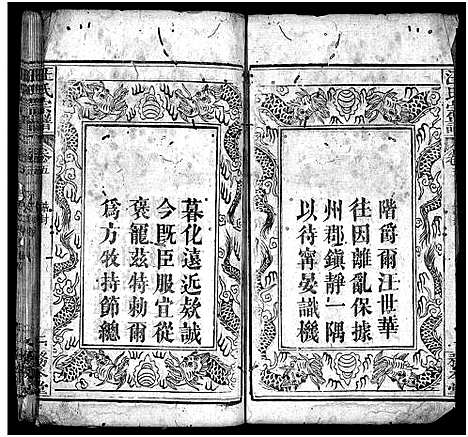 階爵爾汪世華
往因離亂保據
州郡鎮靜一隅
以待寧晏識機
慕化遠近欵誠
今既臣服宜從
褒寵茲特勅爾
爲方牧持節總
汪氏宗譜